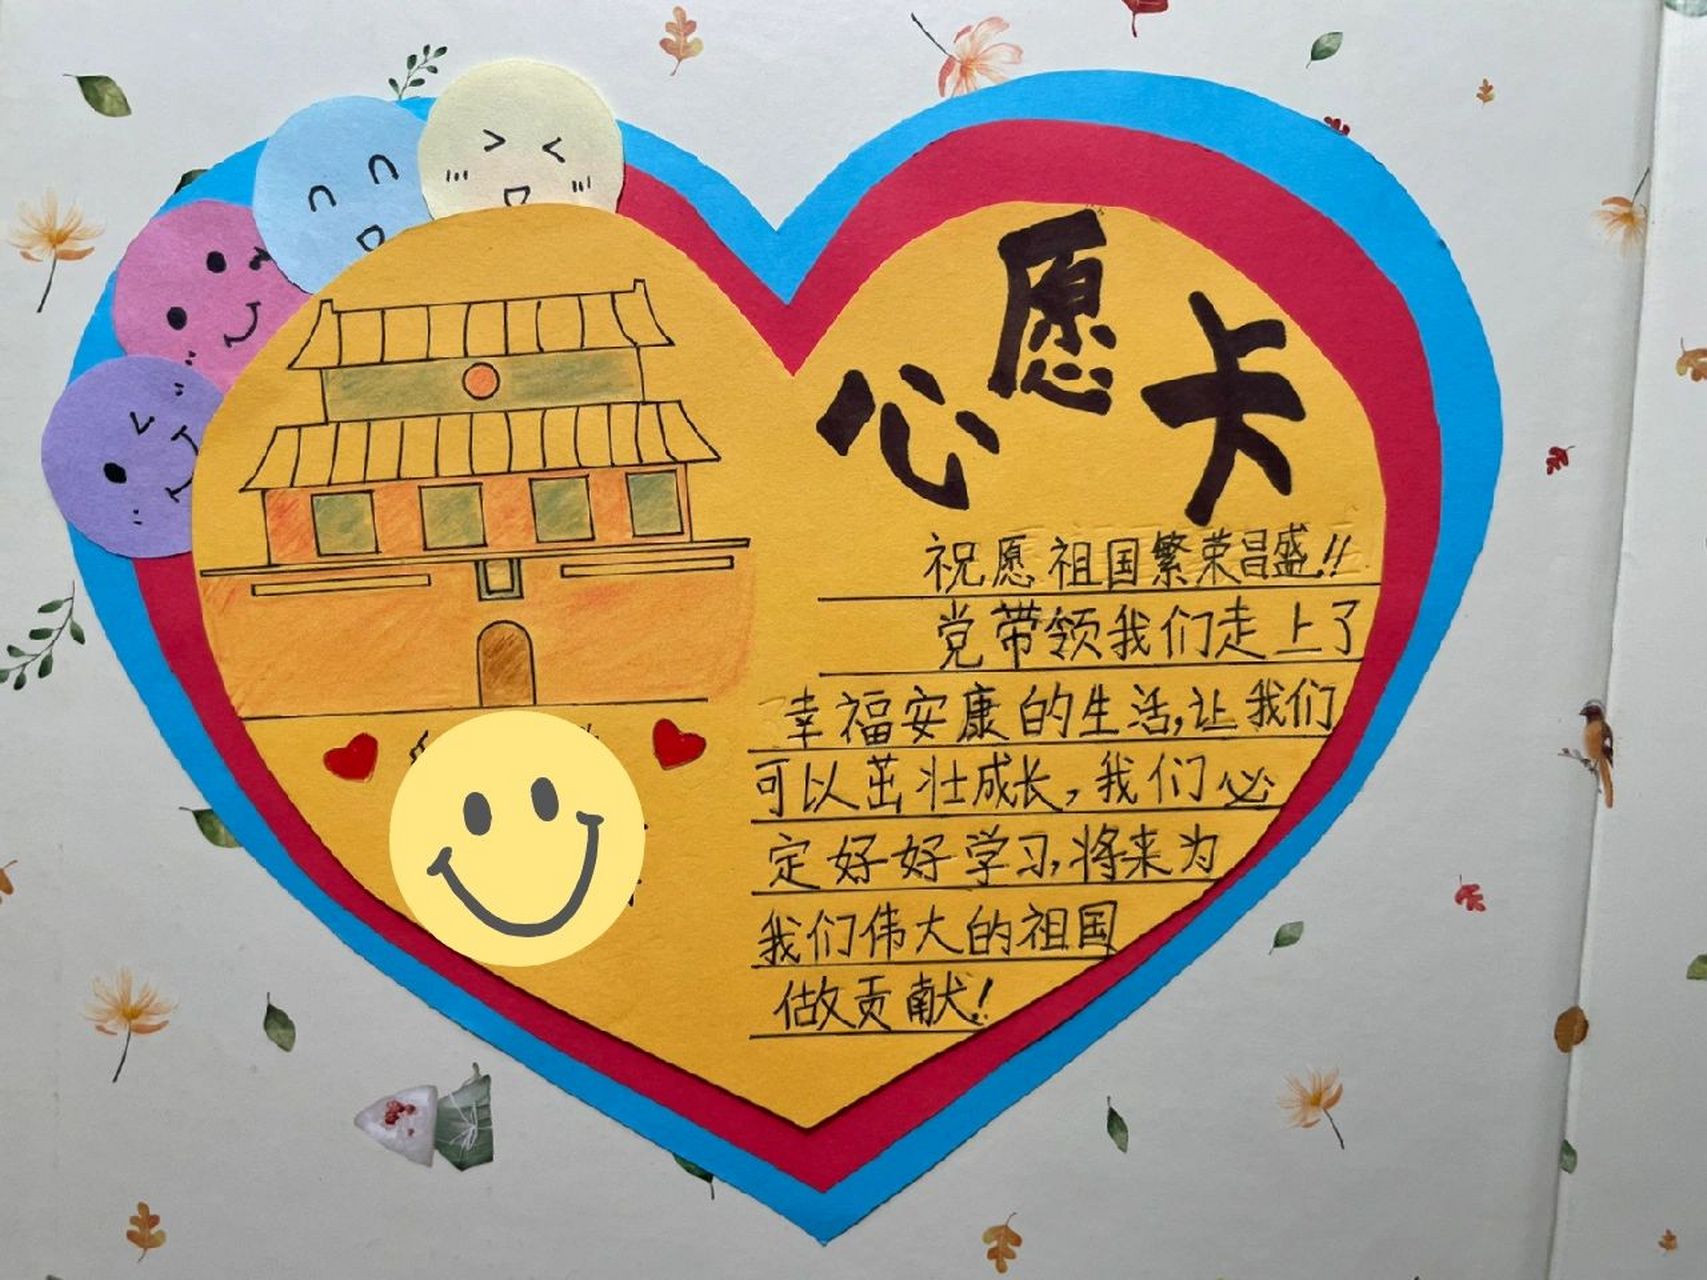 心愿卡
祝愿祖国繁荣昌盛!!
党带领我们走上了
幸福安康的生活,让我们
可以茁壮成长,我们必
定好好学习,将来为
我们伟大的祖国
做贡献!